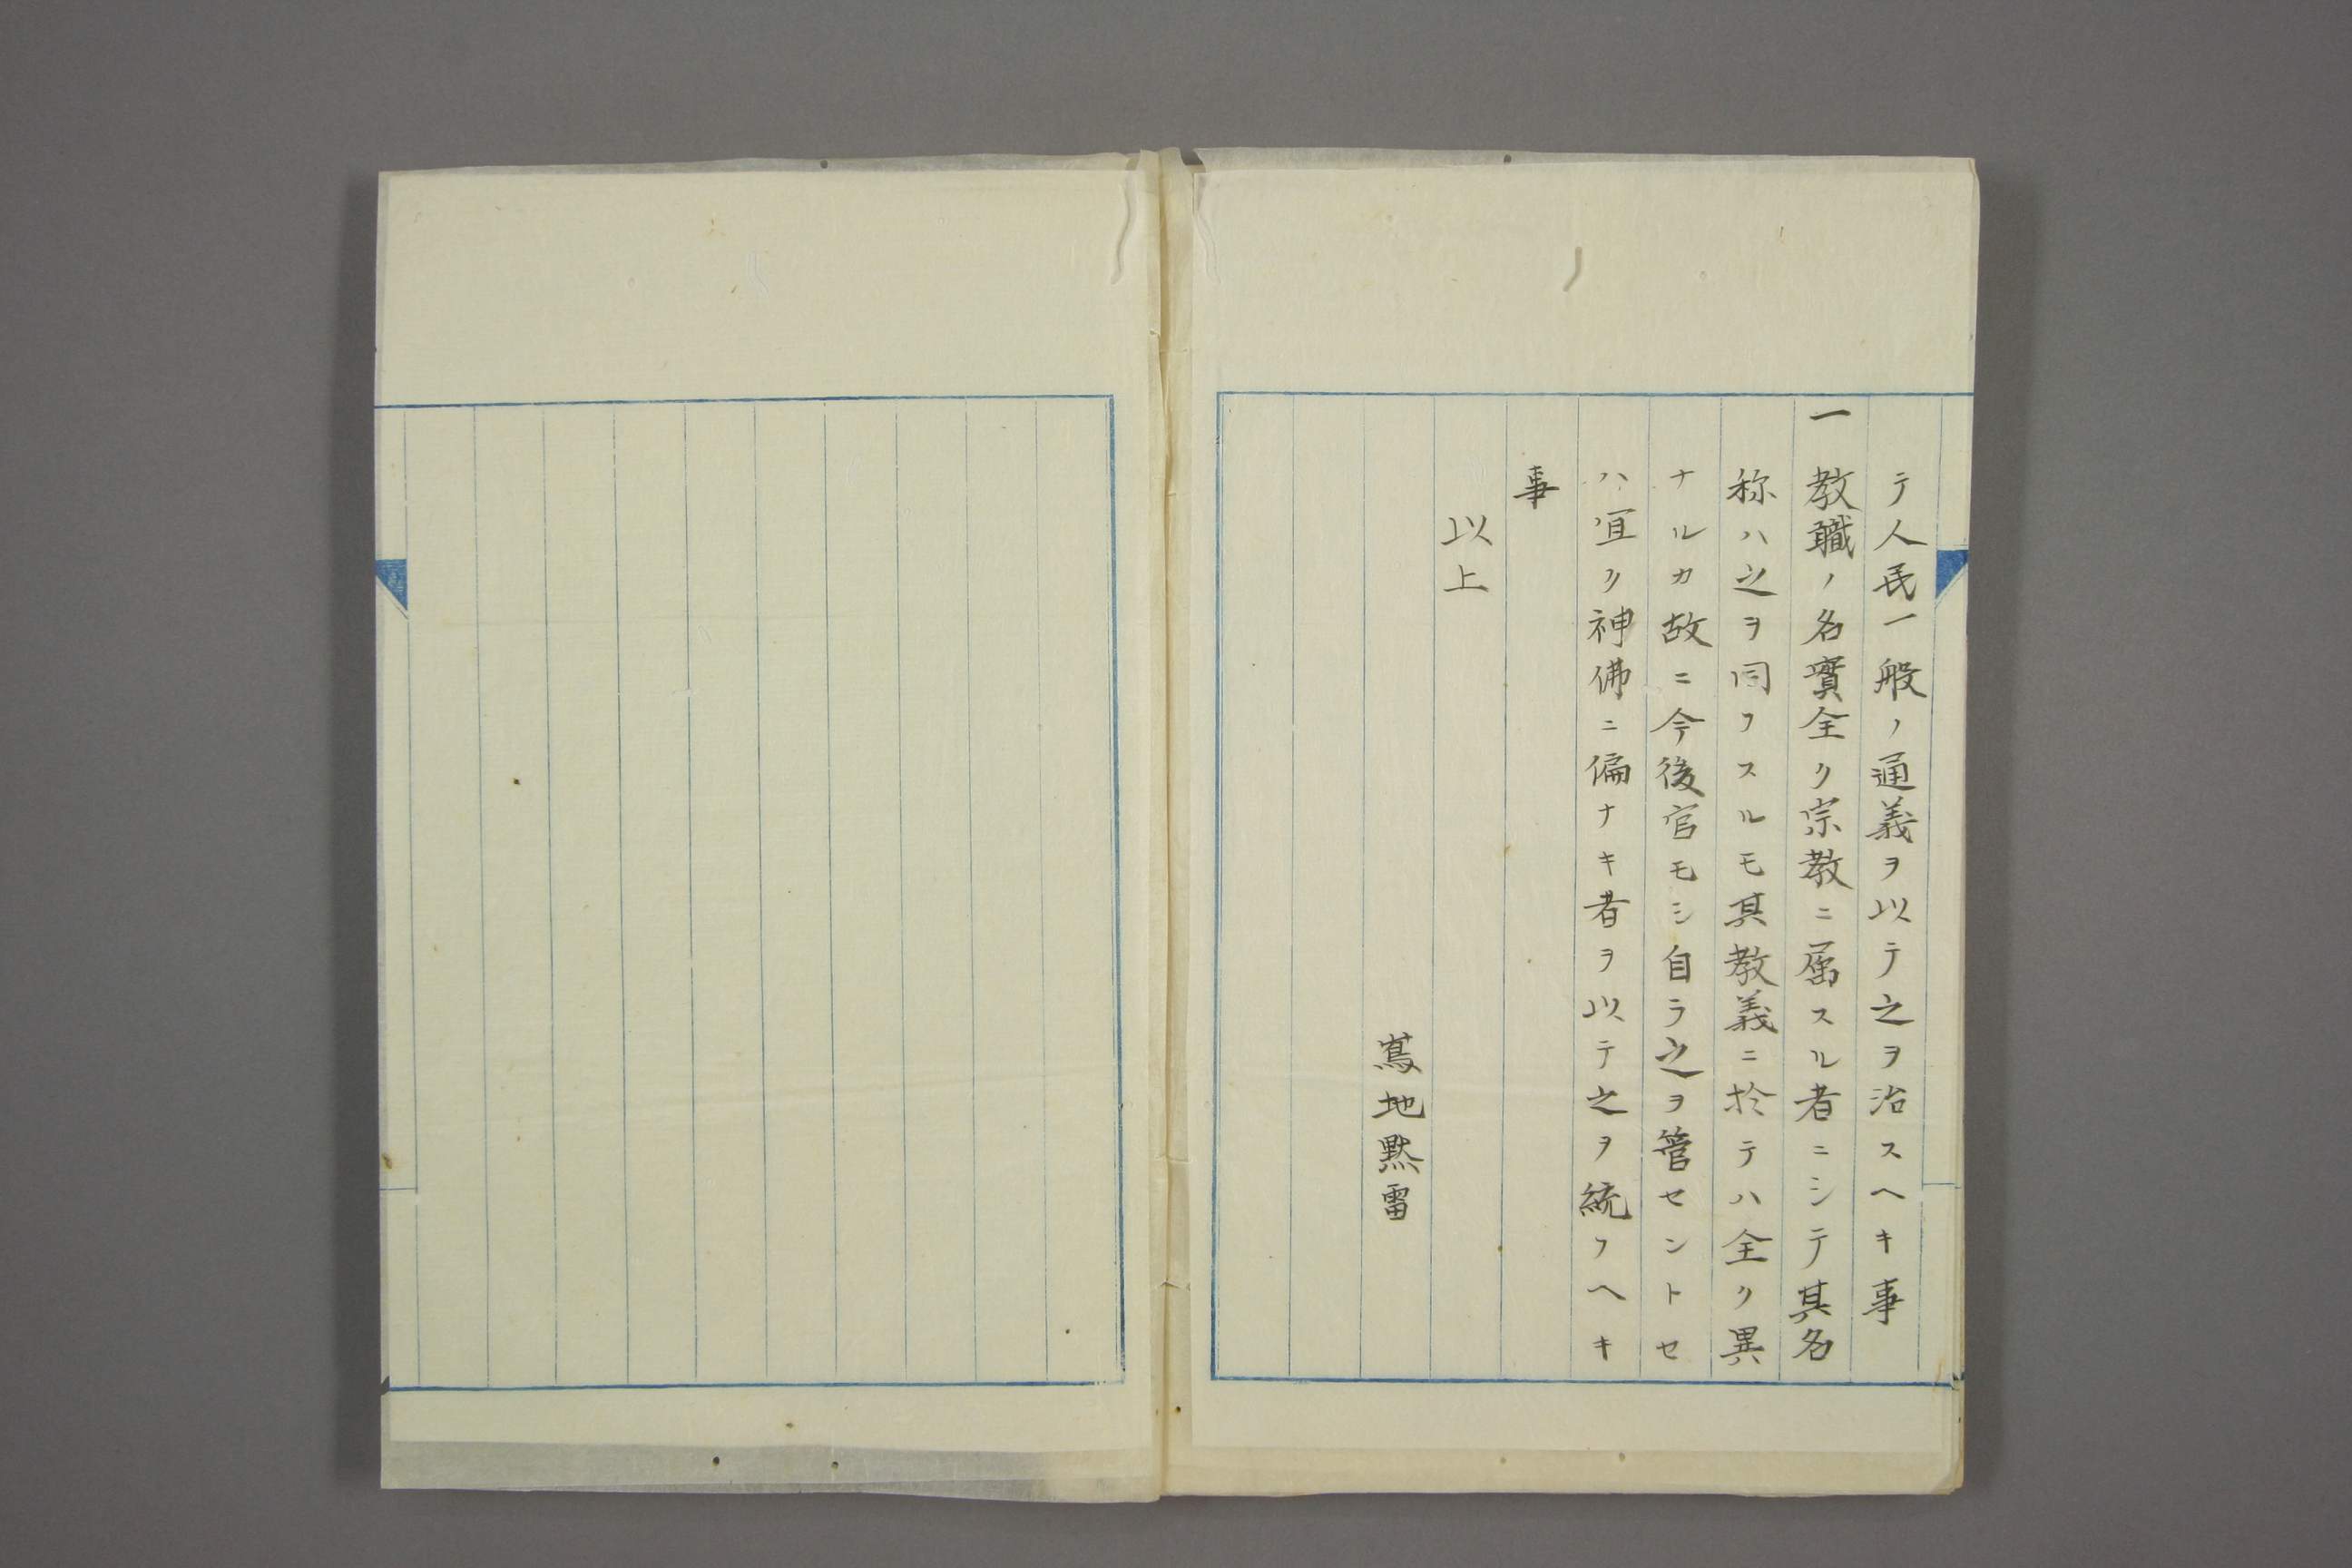 テ人民一般ノ通義ヲ以テ之ヲ治スヘキ事
一教職ノ名實全ク宗教ニ屬スル者ニシテ其名
称ハ之ヲ同フスルモ其教義ニ於テハ全ク異
ナルカ故ニ今後官モシ自ラ之ヲ管セントセ
ハ宜ク神佛ニ偏ナキ者ヲ以テ之ヲ統フヘキ
事
以上
嶌地黙雷